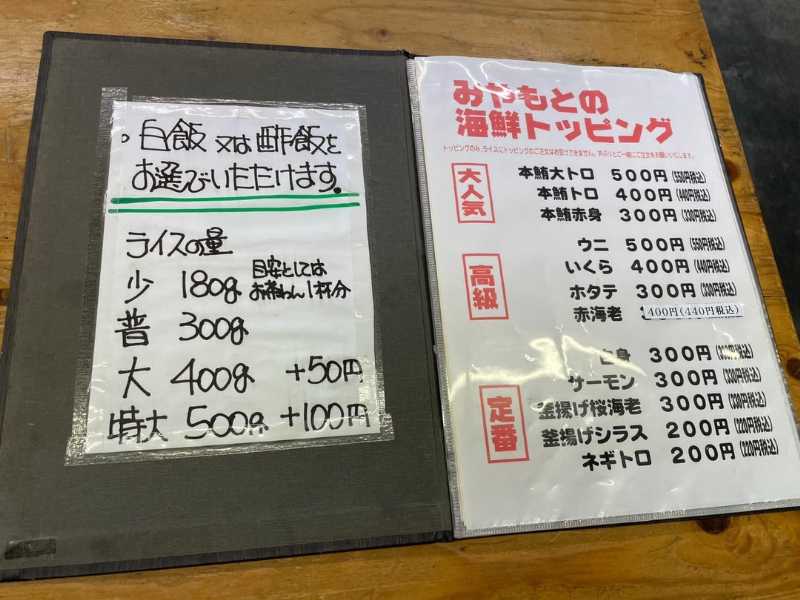 白飯又は酢飯を
お選びいただけます。
ライスの量
少 180g 目安としては
お茶わん1杯分
普 300g
大 400g +50円
特大 500g +100円
みやもとの
海鮮トッピング
トッピングのみ、ライスにトッピングのご注文はお受けできません。丼ぶりとご一緒にご注文をお願いいたします。
大人気
本鮪大トロ 500円(550円税込)
本鮪トロ 400円(440円税込)
本鮪赤身 300円(330円税込)
高級
ウニ 500円(550円税込)
いくら 400円(440円税込)
ホタテ 300円(330円税込)
赤海老 400円(440円税込)
定番
白身 300円(330円税込)
サーモン 300円(330円税込)
釜揚げ桜海老 300円(330円税込)
釜揚げシラス 200円(220円税込)
ネギトロ 200円(220円税込)